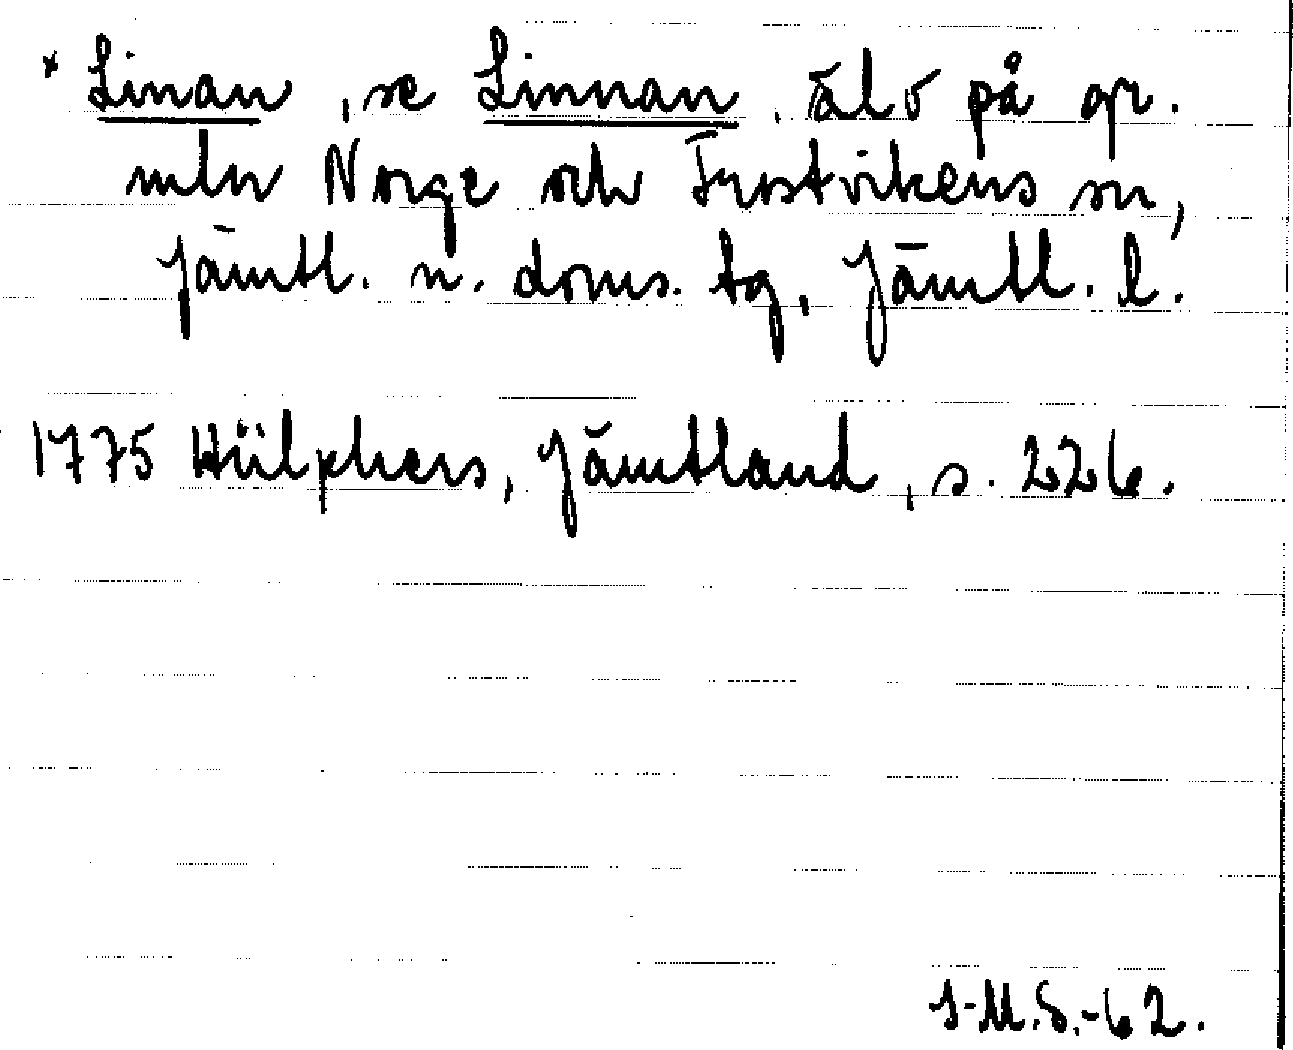 * Linan, se Linnan, älv på gr.
mln Norge och Frostvikens sn,
Jämtl. n. doms. tg, Jämtl. l.
1775 Hülphers, Jämtland, s. 226.
I-M.S.-62.